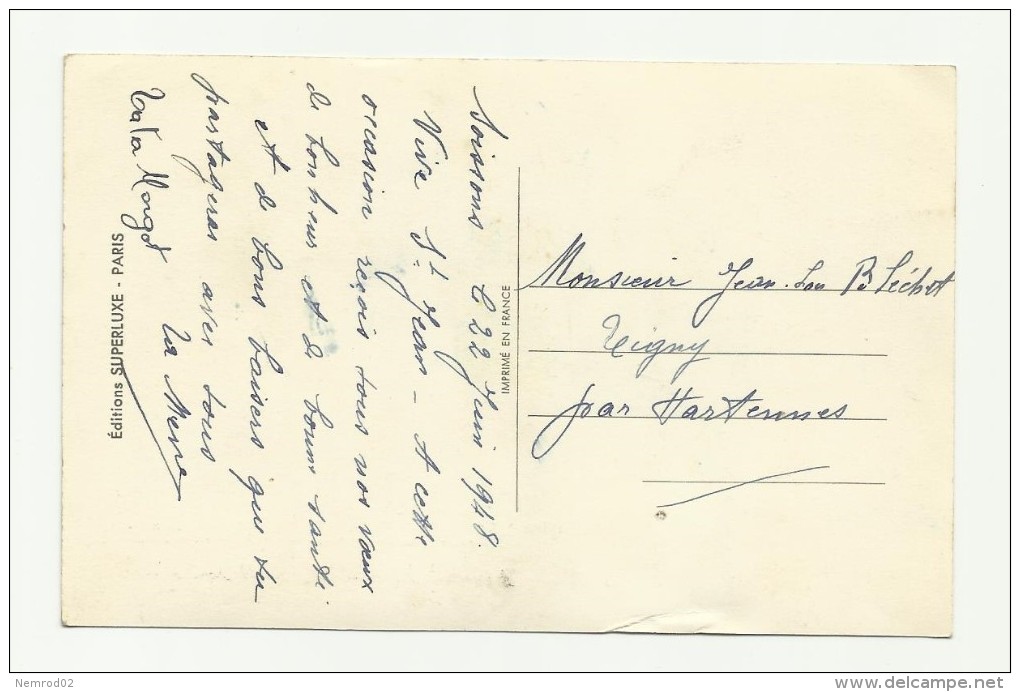 Soissons le 22 Juin 1948.
Vive St Jean - A cette
occasion reçois tous nos vœux
de bonheur et de bonne santé
et de bons baisers que tu
partageras avec tous
Tata Margot
IMPRIMÉ EN FRANCE
Éditions SUPERLUXE - PARIS
Monsieur Jean-Lou
Tigny
par Hartennes
Nemrod02
www.delcampe.net